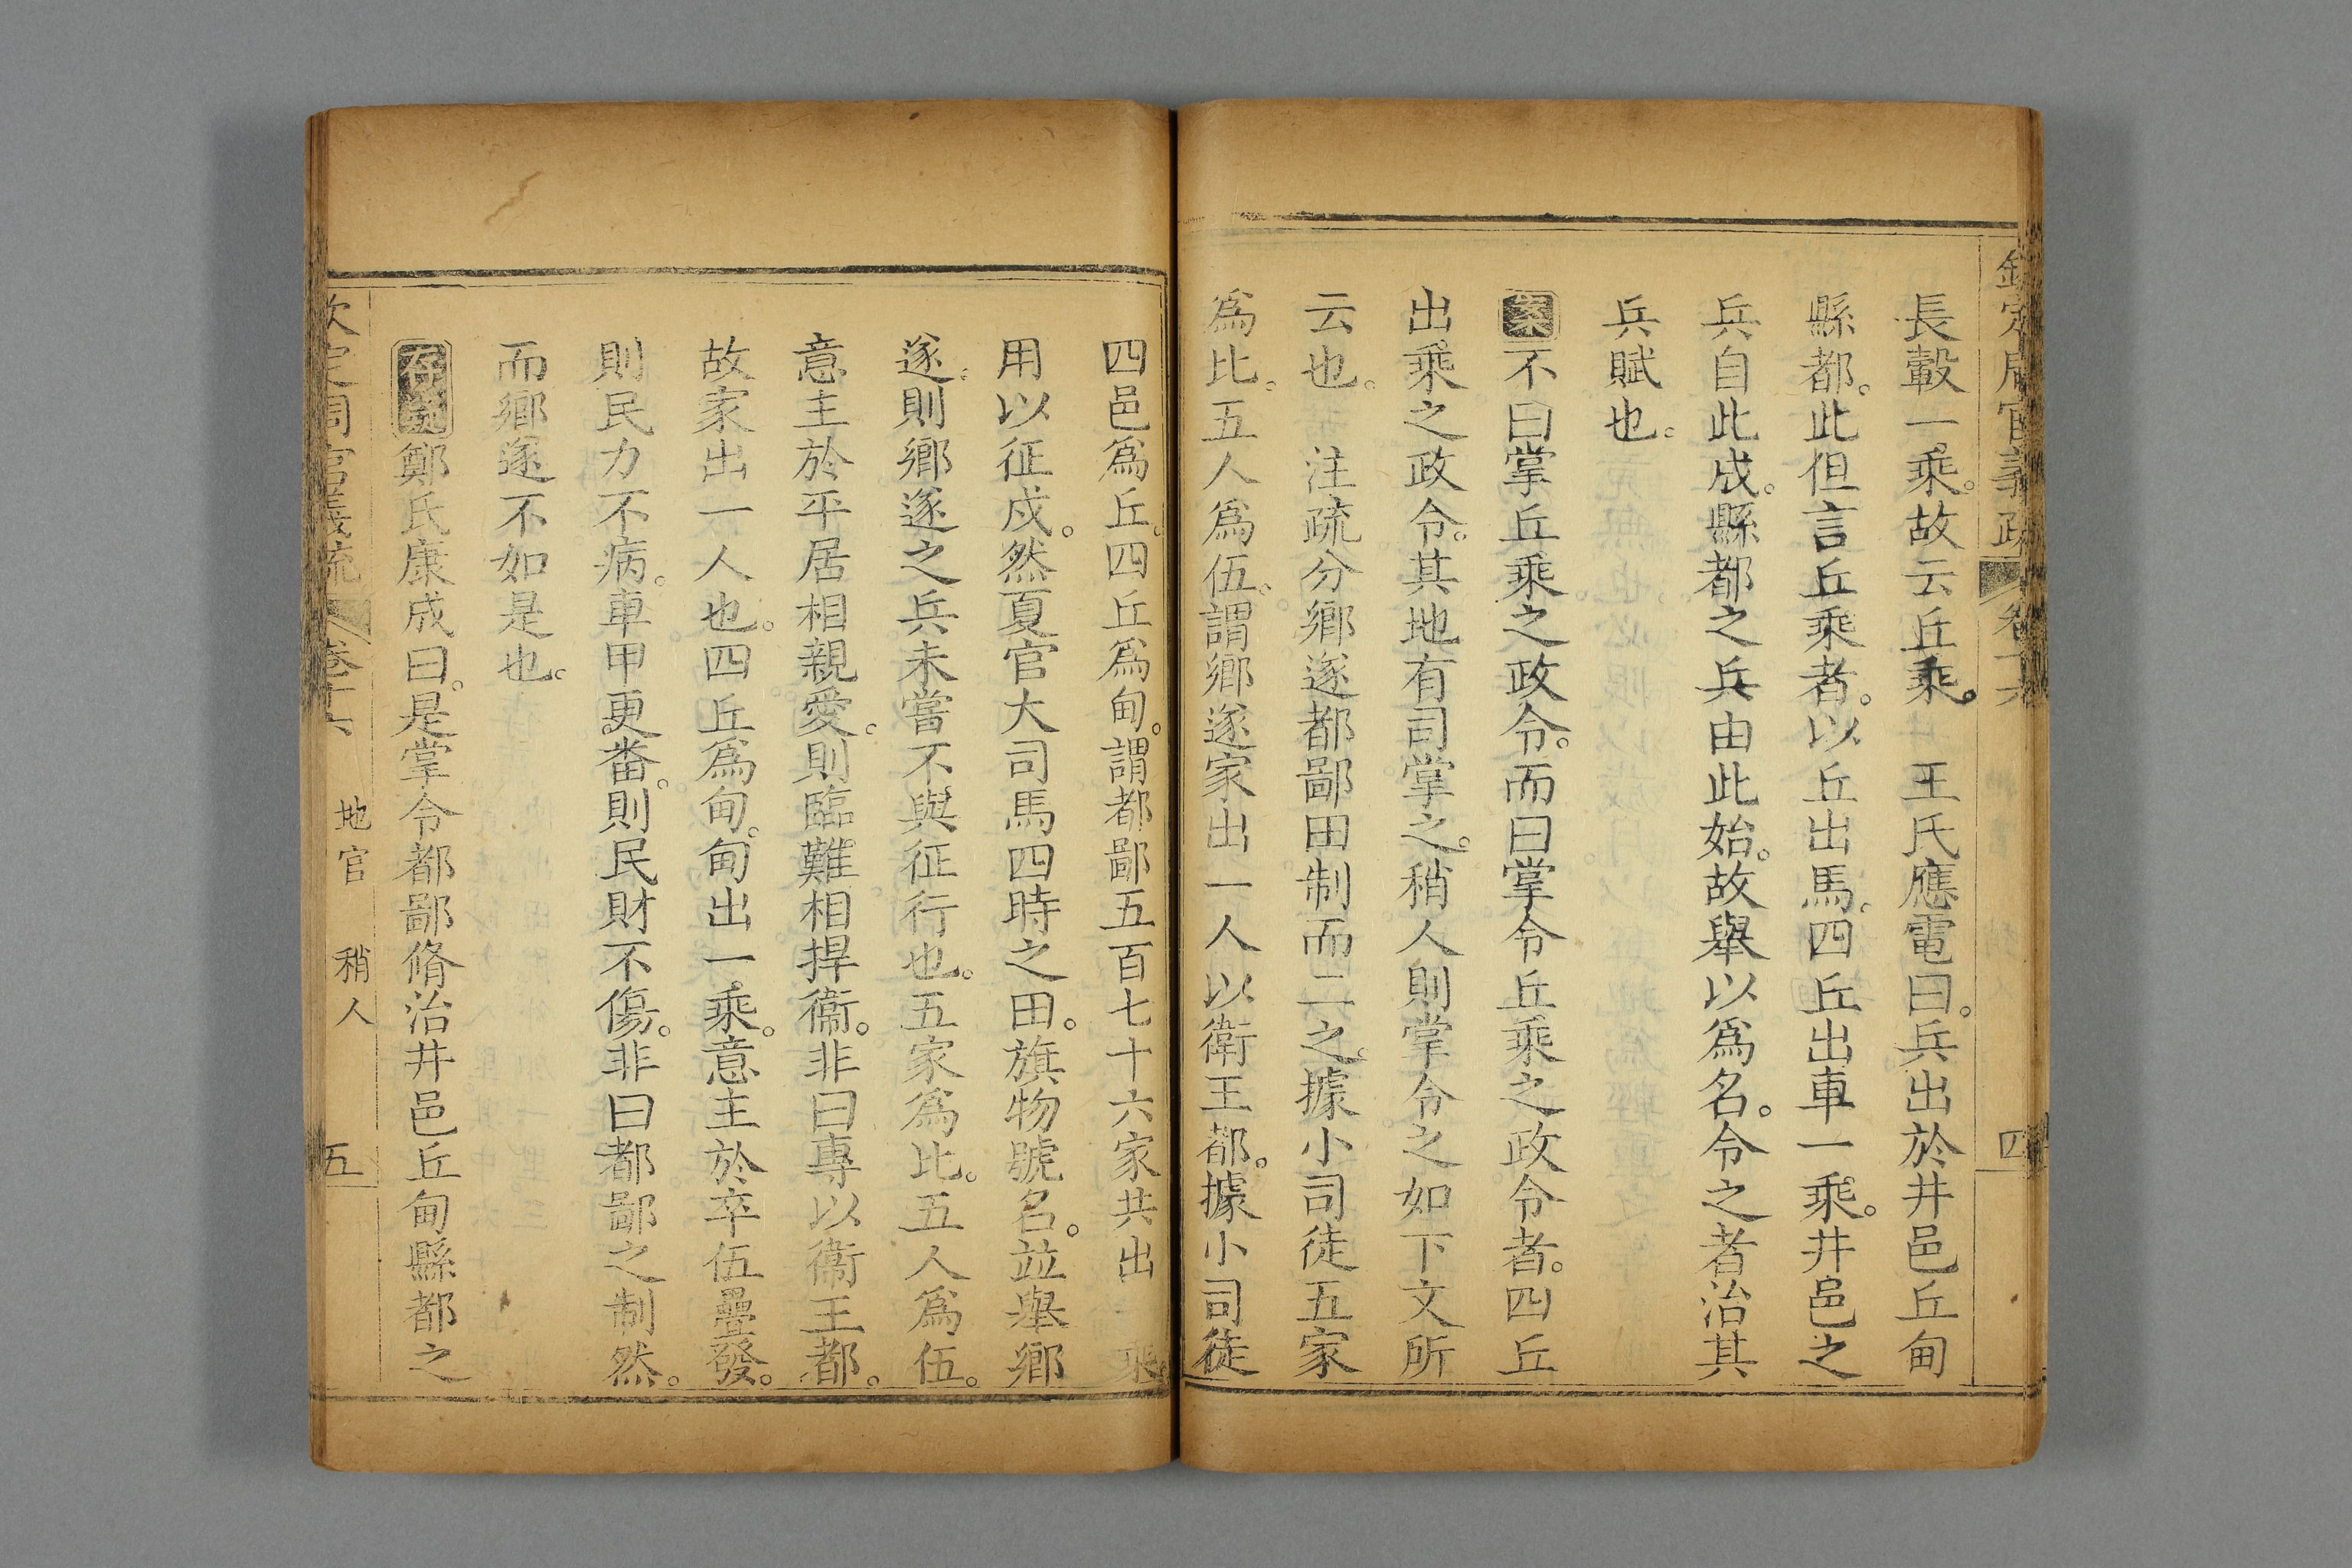 欽定周官義疏 卷十六 四
長轂一乘。故云丘乘。 王氏應電曰。兵出於井邑丘甸
縣都。此但言丘乘者。以丘出馬。四丘出車一乘。井邑之
兵自此成。縣都之兵由此始。故舉以為名。令之者治其
兵賦也。
案不曰掌丘乘之政令。而曰掌令丘乘之政令者。四丘
出乘之政令。其地有司掌之。稍人則掌令之如下文所
云也。 注疏分鄉遂都鄙田制而二之。據小司徒五家
爲比。五人爲伍。謂鄉遂家出一人以衛王都。據小司徒
四邑爲丘。四丘爲甸。謂都鄙五百七十六家共出一乘
用以征戍。然夏官大司馬四時之田。旗物號名。並舉鄉
遂。則鄉遂之兵未嘗不與征行也。五家爲比。五人爲伍。
意主於平居相親愛。則臨難相捍衞。非曰專以衞王都。
故家出一人也。四丘爲甸。甸出一乘。意主於卒伍疊發。
則民力不病。車甲更番。則民財不傷。非曰都鄙之制然。
而鄉遂不如是也。
存義鄭氏康成曰。是掌令都鄙脩治井邑丘甸縣都之
欽定周官義疏 卷十六 地官 稍人 五